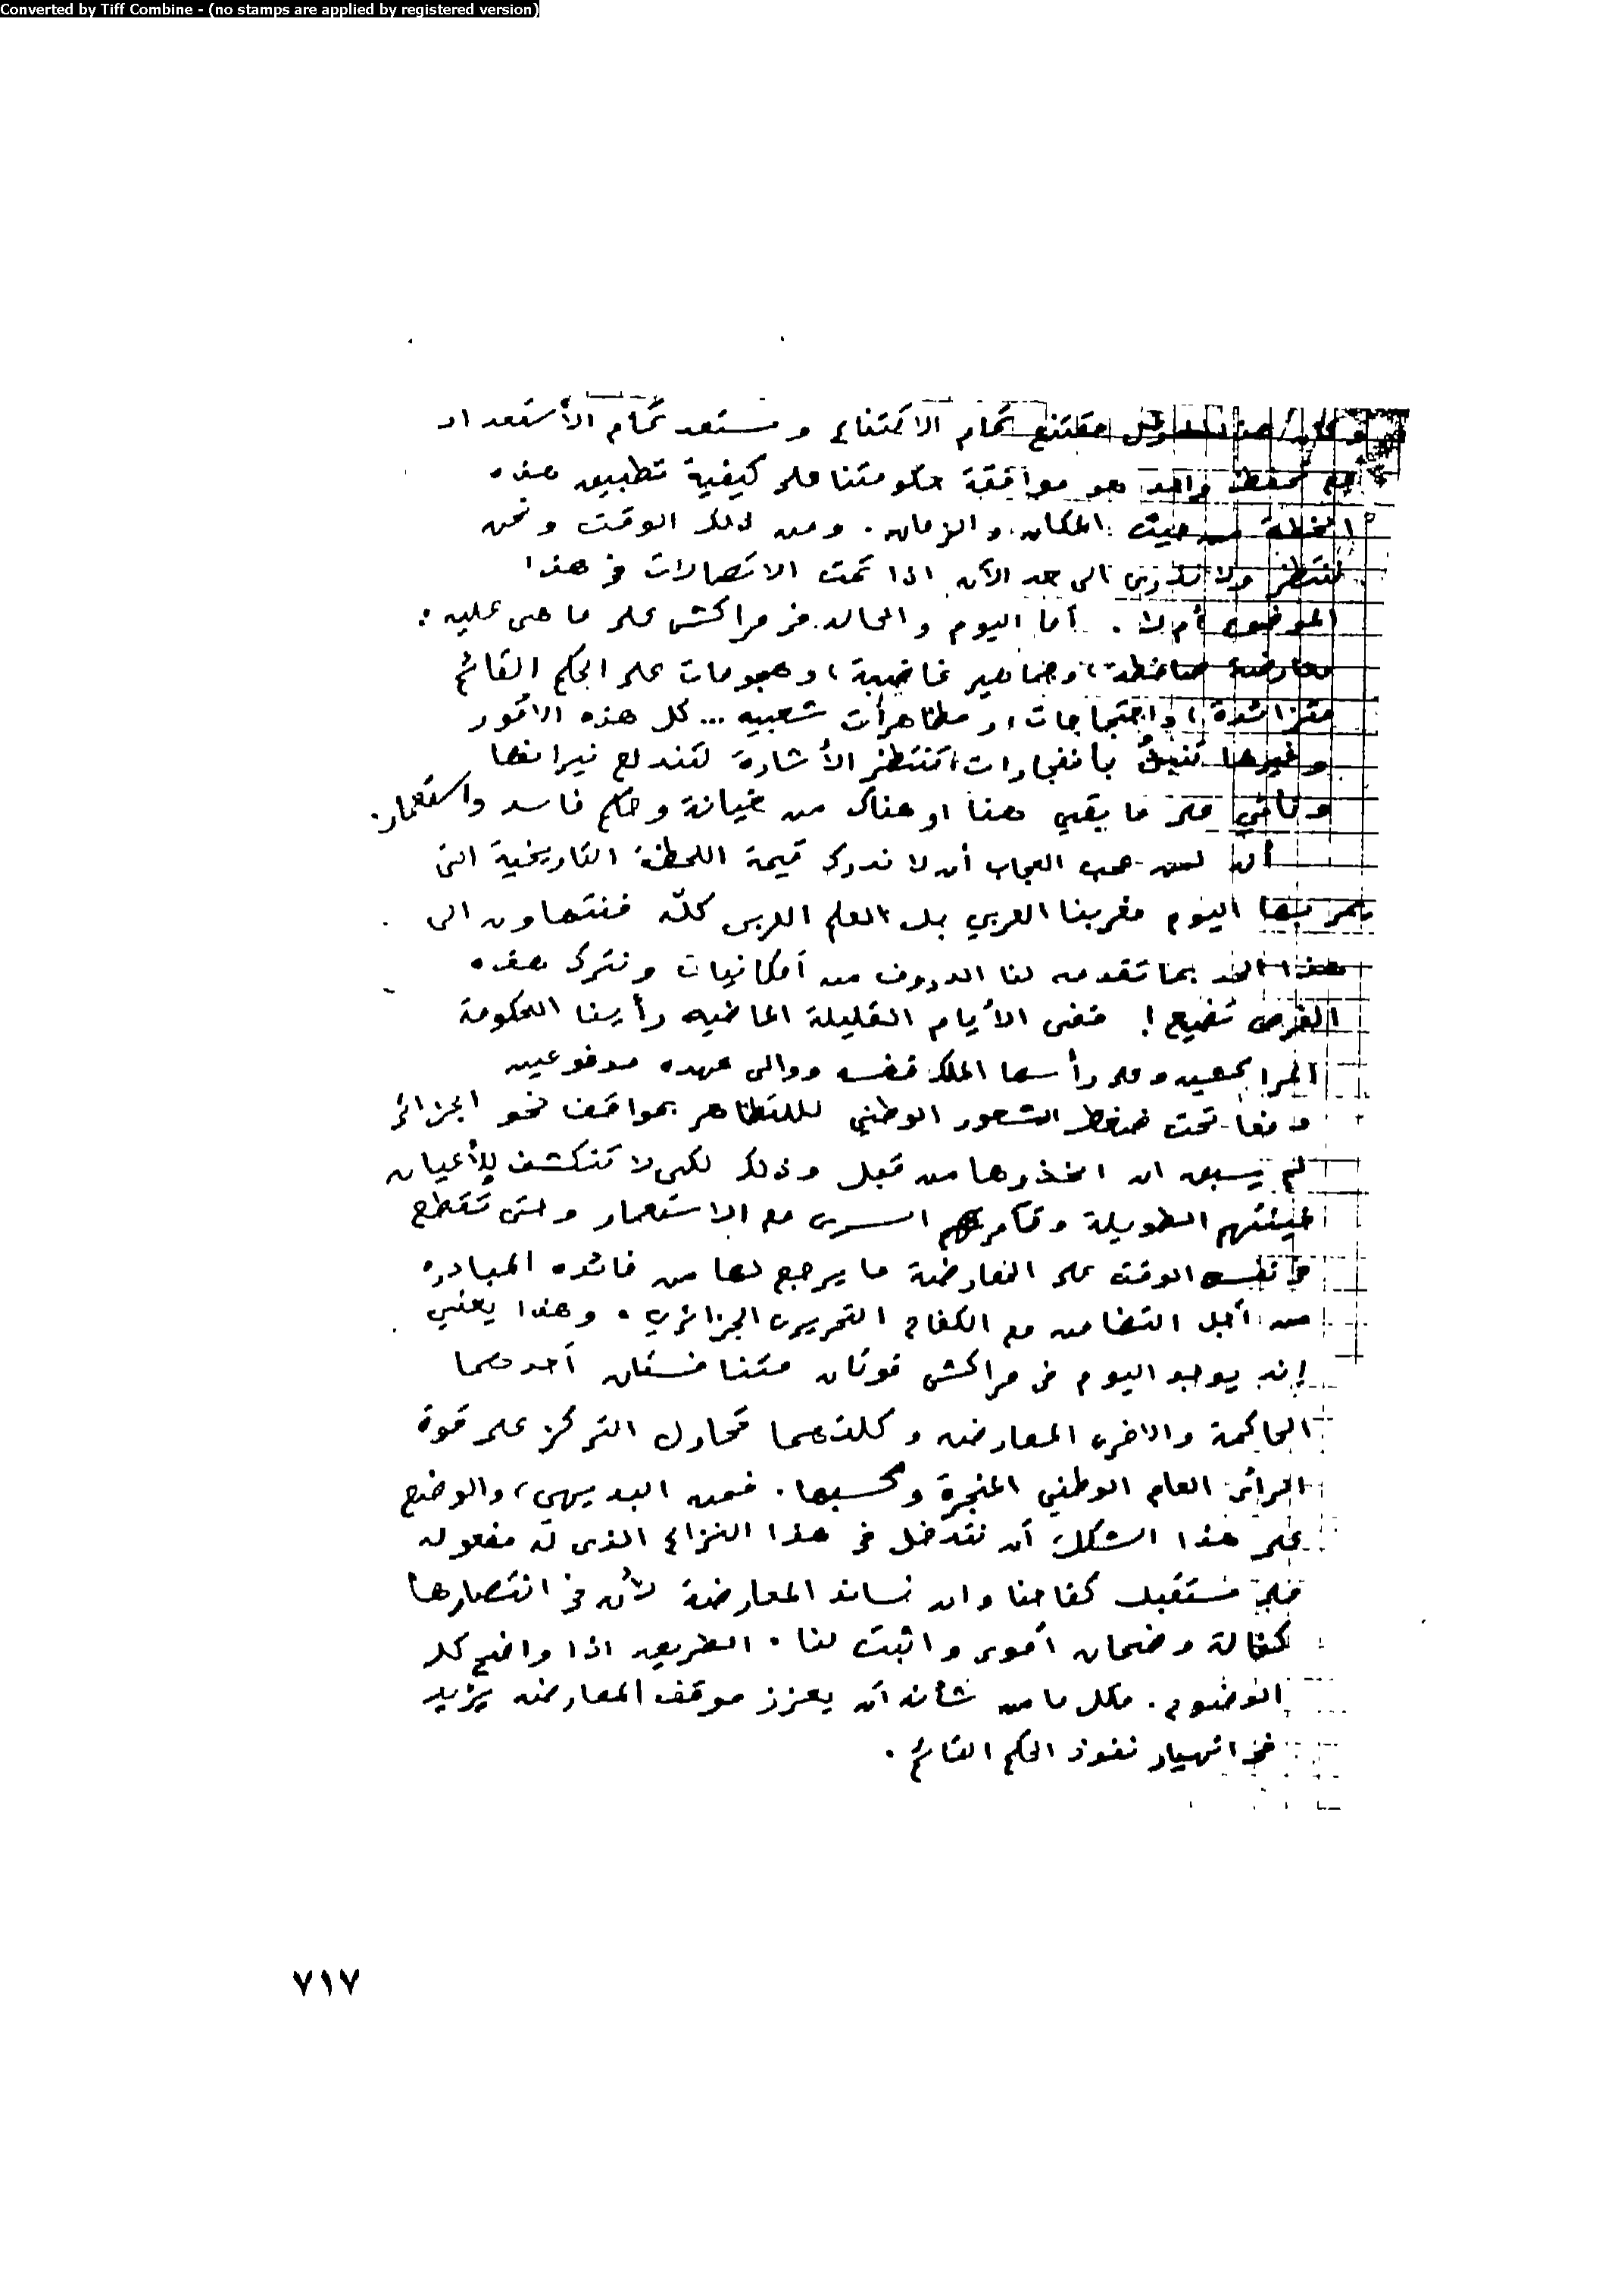 Converted by Tiff Combine - (no stamps are applied by registered version)
وكان هذا مقتنع تمام الاقتناع ومستعد تمام الأستعداد
مع تحفظ واحد هو موافقة حكومتنا على كيفية تطبيق هذه
الخطة من حيث المكان والزمان. ومن ذلك الوقت ونحن
ننتظر ولا ندرى الى حد الآن اذا تمت الاتصالات في هذا
الموضوع أم لا. أما اليوم والحاله في مراكش على ما هى عليه:
معارضة ضاغطة، وجماهير غاضبة، وهجومات على الحكم القائم
متزائدة، واحتجاجات، ومظاهرات شعبيه... كل هذه الأمور
وغيرها تنبئ بانفجارات تنتظر الأشارة لتندلع نيرانها
وتأتي على ما بقي هنا او هناك من خيانة وحكم فاسد واستعمار.
أن لمن عجب العجاب أن لا ندرك قيمة اللحظة التاريخية التى
يمر بها اليوم مغربنا العربي بل العلم العربى كلّه فنتهاون الى
هذا الحد بما تقدمه لنا الظروف من أمكانيات ونترك هذه
الفرص تضيع! ففى الأيام القليلة الماضيه رأينا الحكومة
المراكشيه وعلى رأسها الملك نفسه ووالى عهده مدفوعين
دفعا تحت ضغط الشعور الوطني للتظاهر بمواقف نحو الجزائر
لم يسبق ان اتخذوها من قبل وذلك لكى لا تنكشف للأعيان
خيانتهم الطويلة وتآمرهم السرى مع الاستعمار وحتى تقطع
في نفس الوقت على المعارضة ما يرجع لها من فائده المبادره
من أجل التضامن مع الكفاح التحريرى الجزائري. وهذا يعني
إنه يوجد اليوم فى مراكش قوتان متنافستان أحدهما
الحاكمة والاخرى المعارضه وكلتهما تحاول التركز على قوة
الرأى العام الوطني المنجرة وكسبها. فمن البديهي، والوضع
على هذا الشكل أن نتدخل في هذا النزاع الذى له مفعوله
على مستقبل كفاحنا وان نساند المعارضة لأن في انتصارها
كفالة وضمان أقوى واثبت لنا. الطريق اذا واضح كل
الوضوح. فكل ما من شأنه أن يعزز موقف المعارضه يزيد
في انهيار نفوذ الحكم القائم.
٧١٧